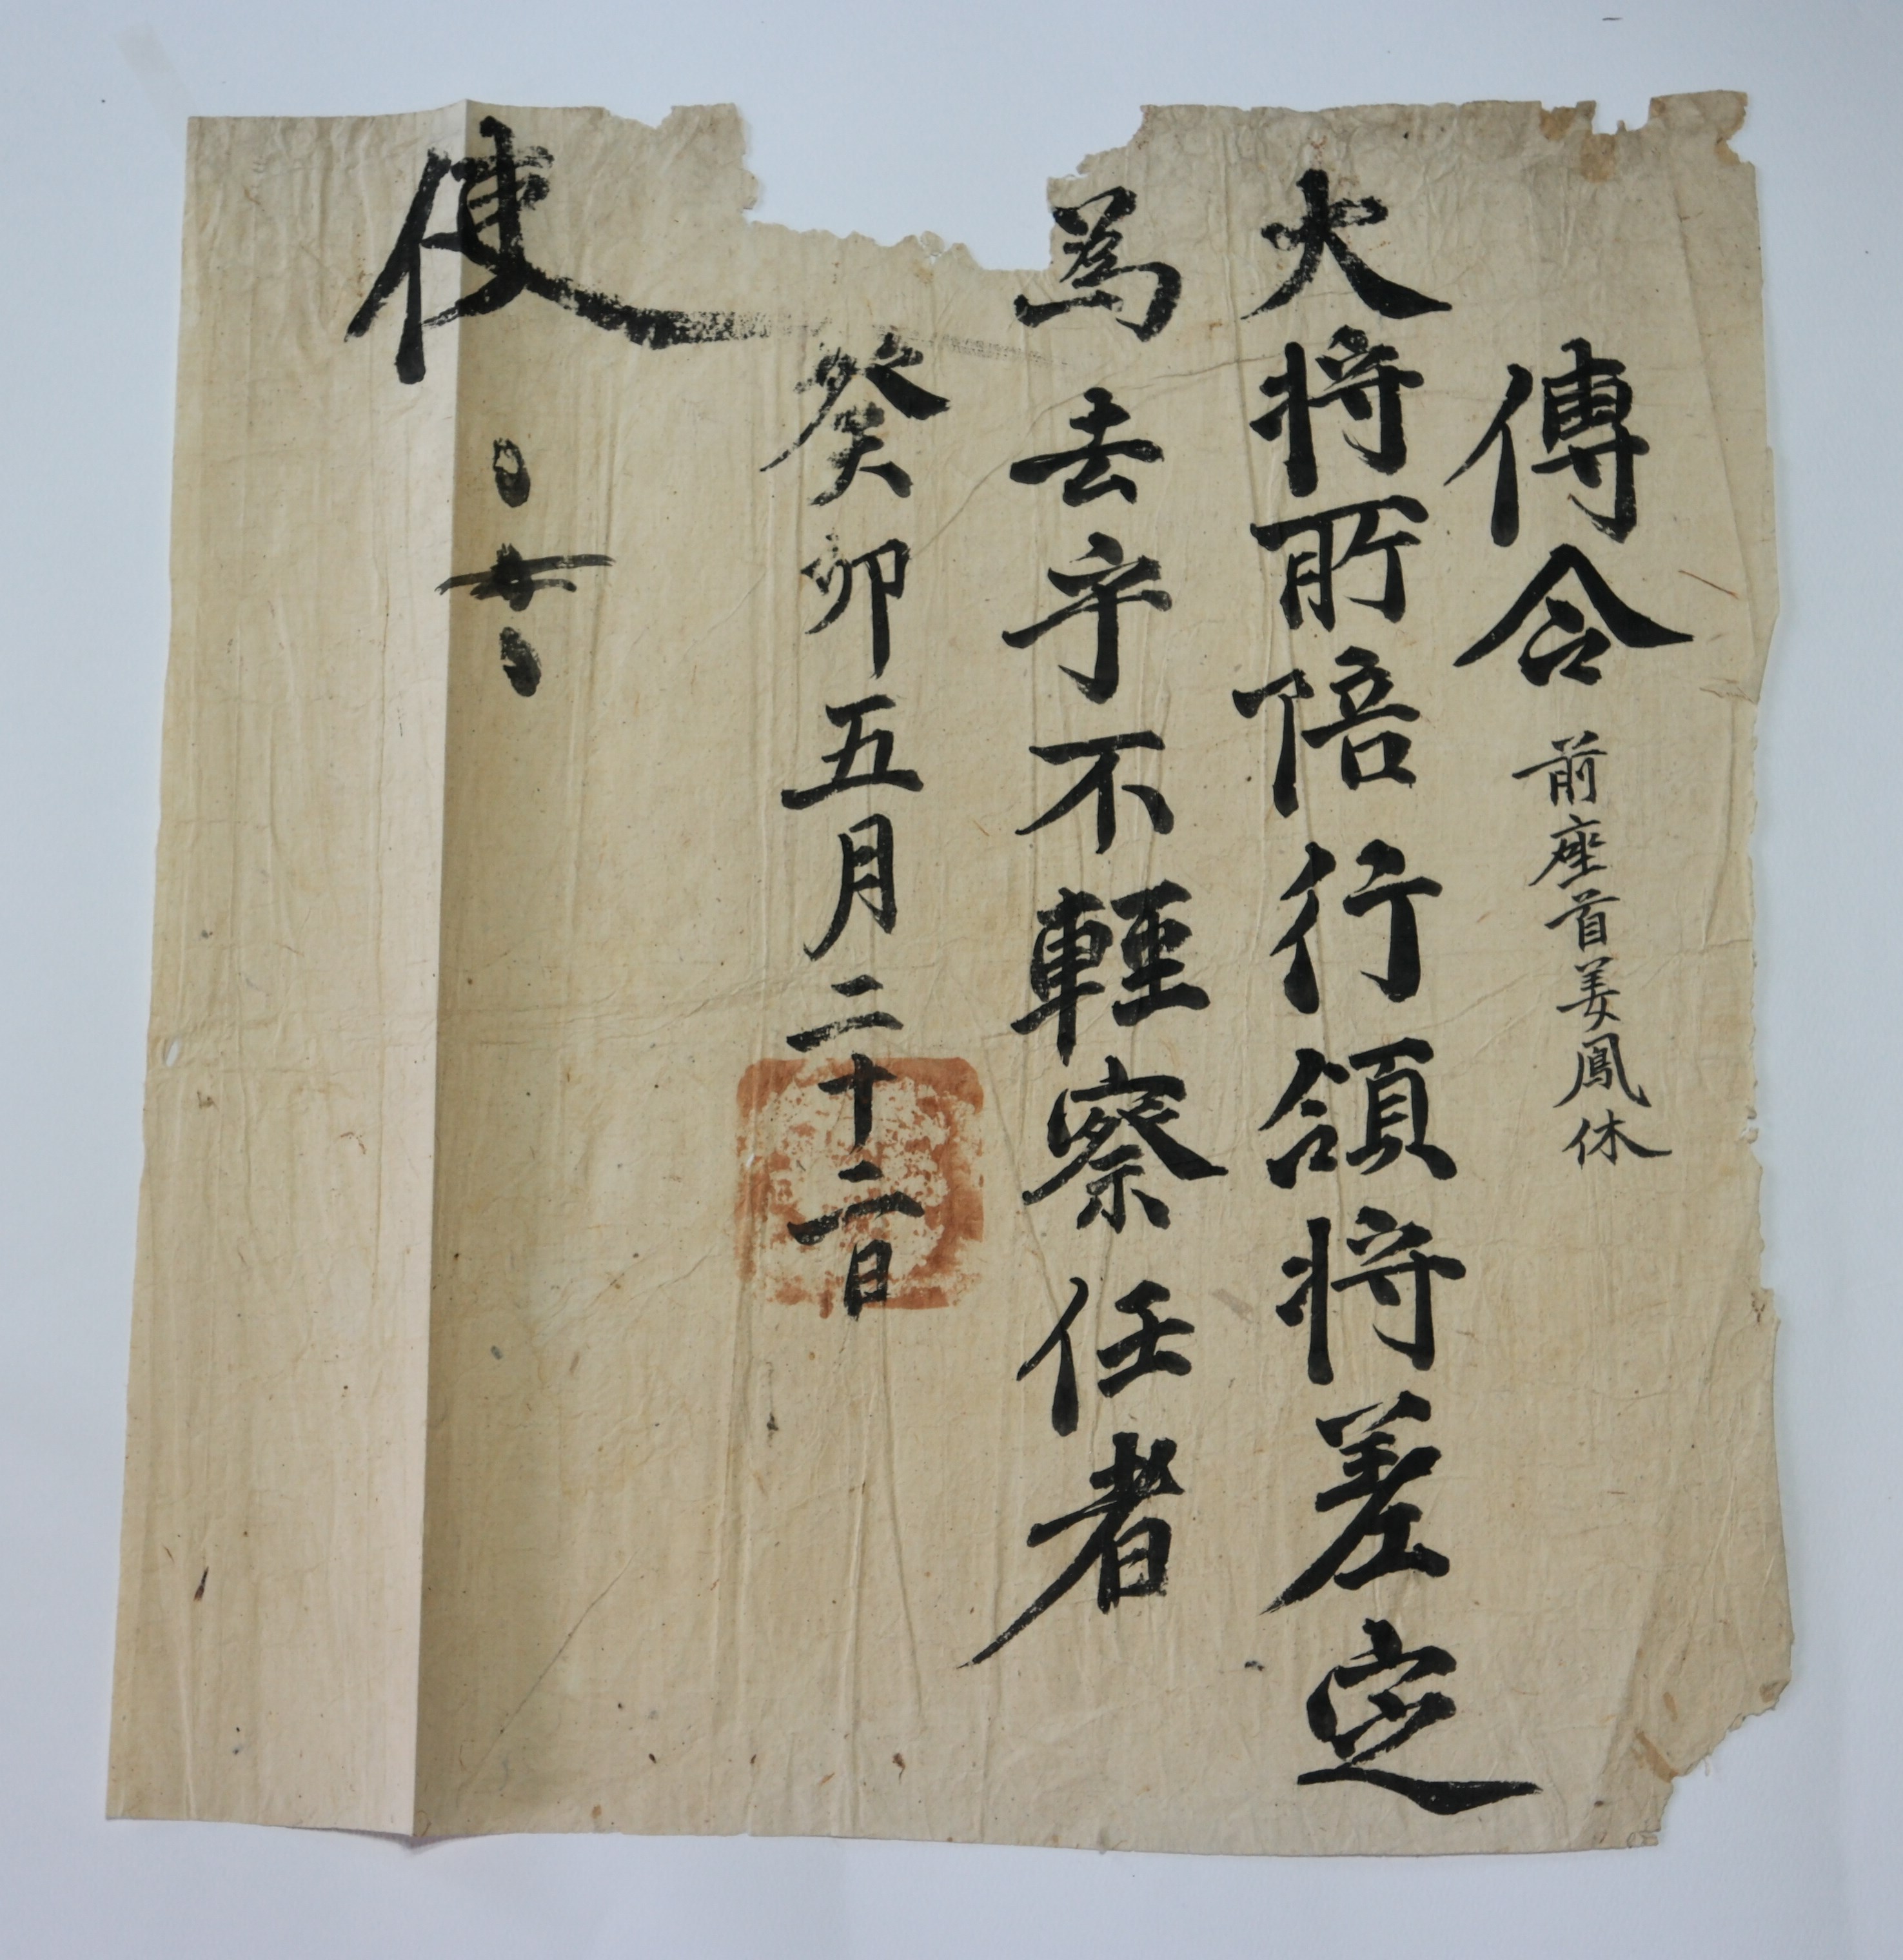 傳令 前座首姜鳳休
大將所陪行領將差定
為去乎不輕察任者
癸卯五月二十二日
使